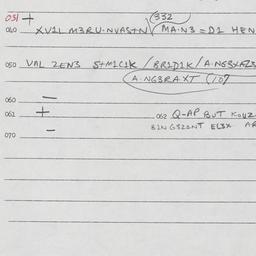 031 + 332
040 XV1L M3RU·NVAS+N MA·N3 = D1 HEN
050 VAL ZEN3 S+M1C1K / BR1D1K / A·NG3XAZ3
A·NG3RAXT (107
060 —
061 + 062 Q-AP BUT KOUZ
B1N G3ZONT EL3X AR
070 —